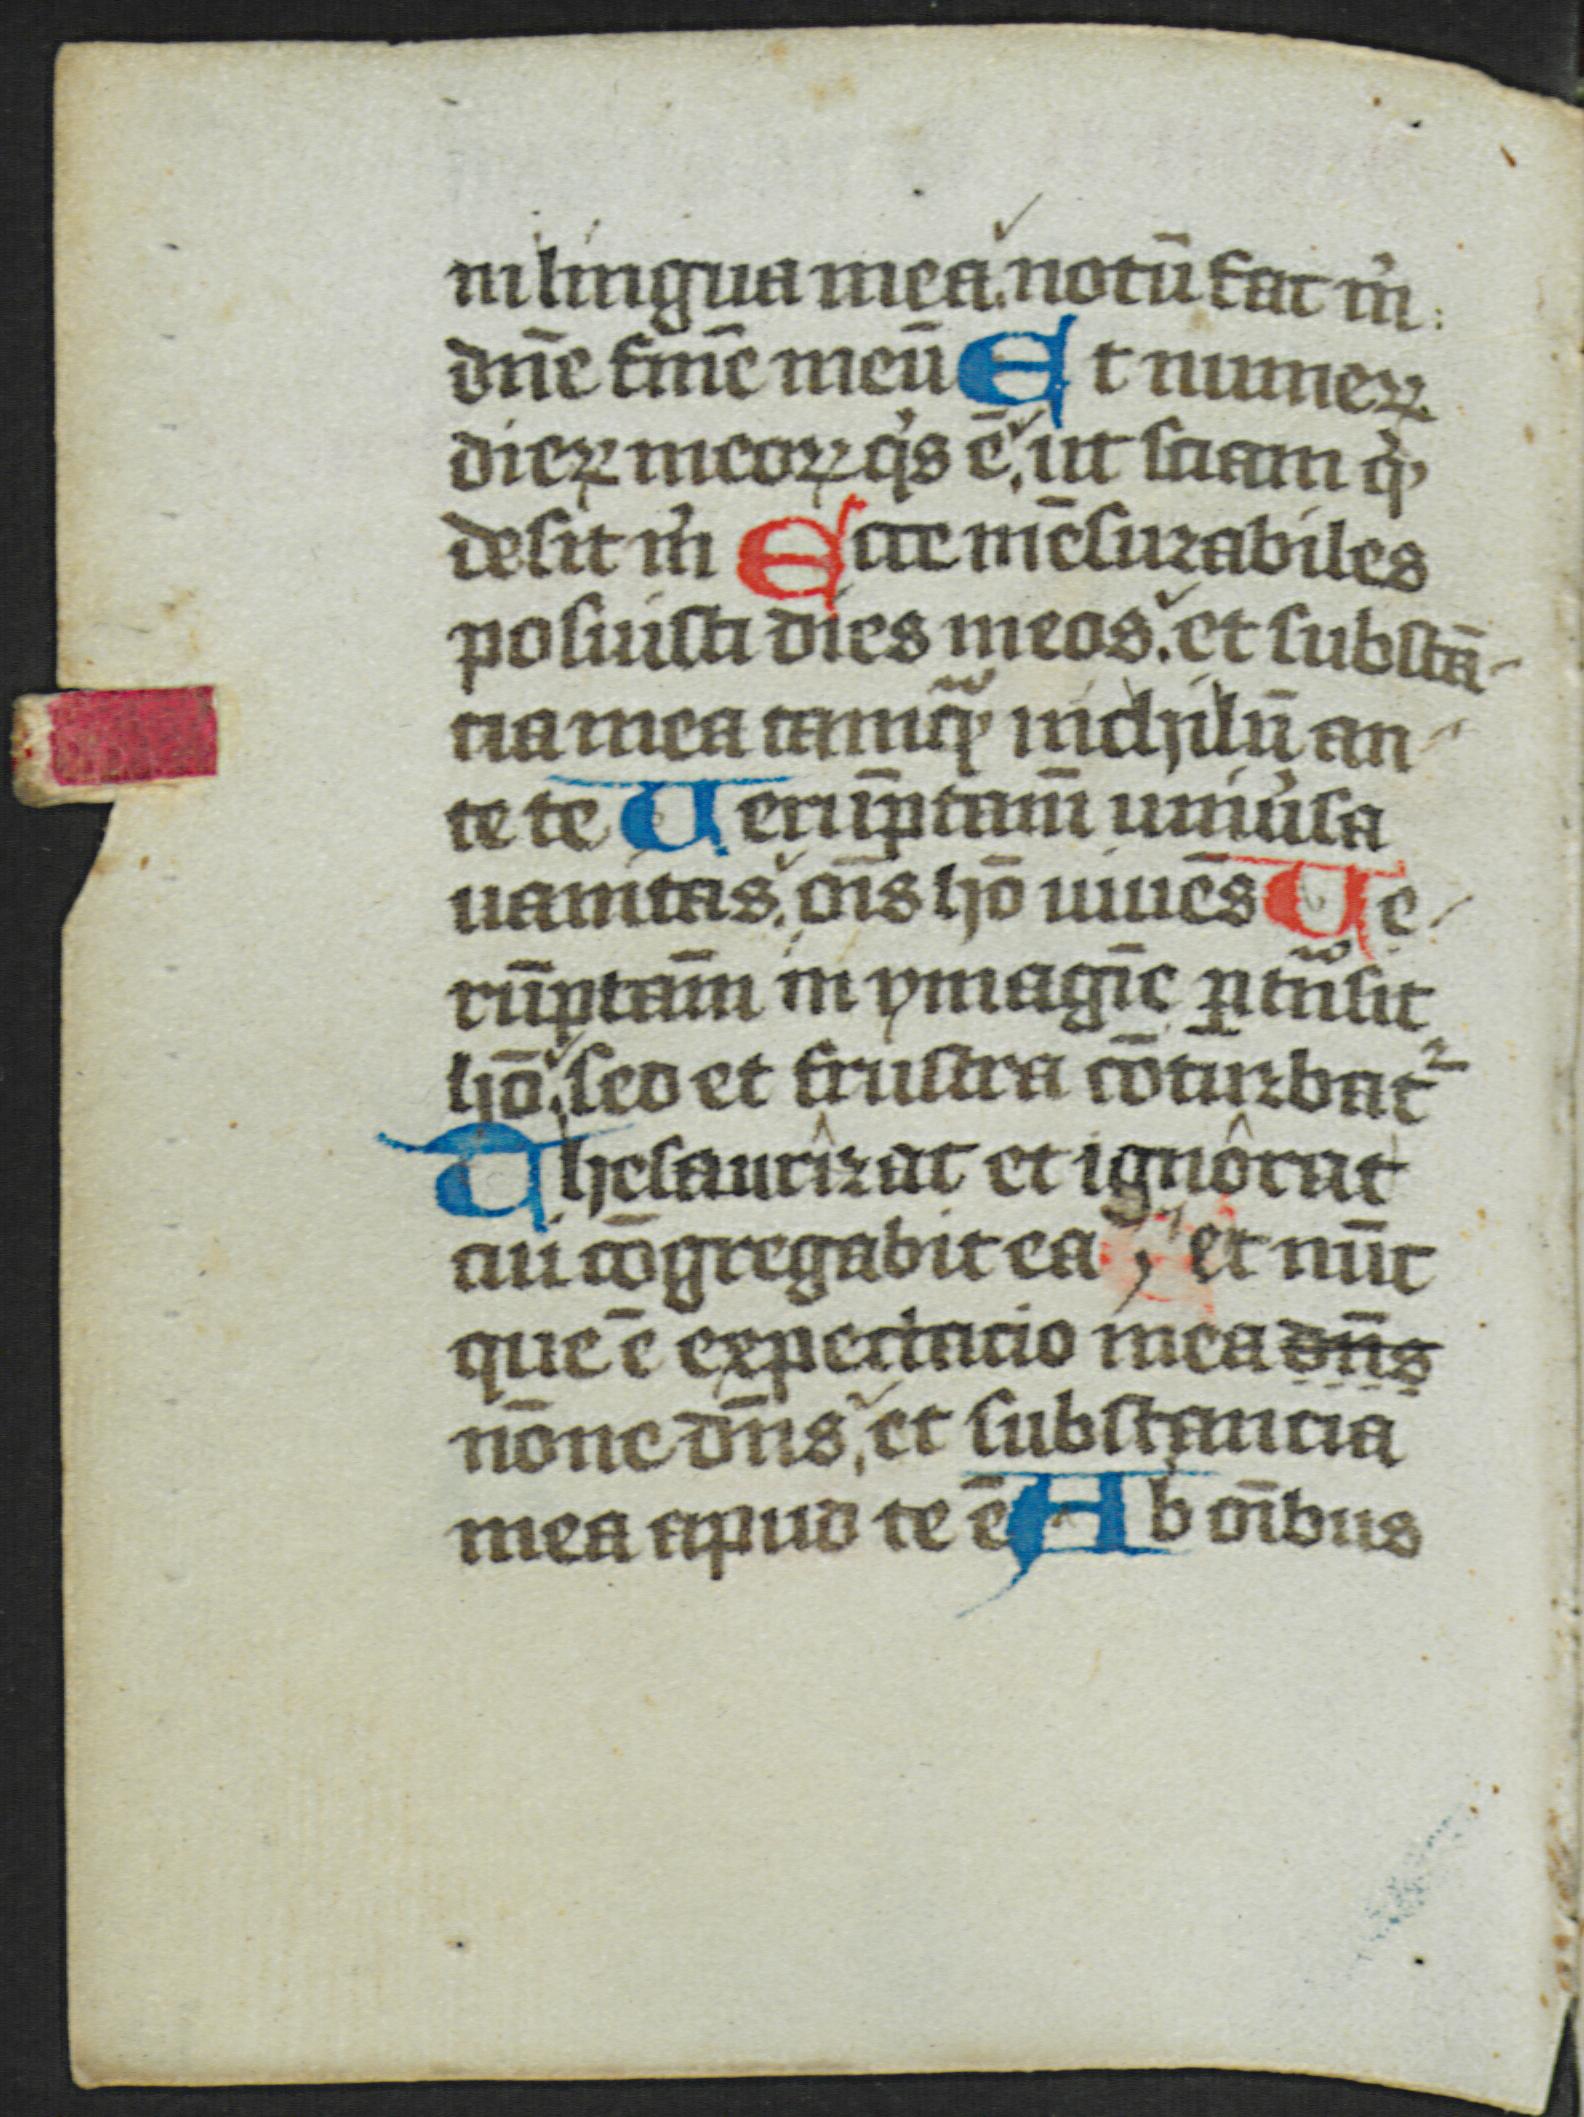 in lingua mea. notū fac m̄
dn̄e finē meū Et numeꝝ
dieꝝ meoꝝ qͥs ē, ut sciam qͥd
desit m̄ Ecce mēsurabiles
posuisti dies meos. et substā-
tia mea tamqͣ nichilū an-
te te Uerūptam̄ uniu̓sa
uanitas. oīs hō uiuēs Ue-
rūptam̄ in ymagīe ꝑtͣnsit
hō. sed et frustra cōturbat᷑
Thesaurizat et ignorat
cui cōgregabit ea, et nūc
que ē expectacio mea dn̄s
nōne dn̄s, et substancia
mea apud te ē Ab oībus